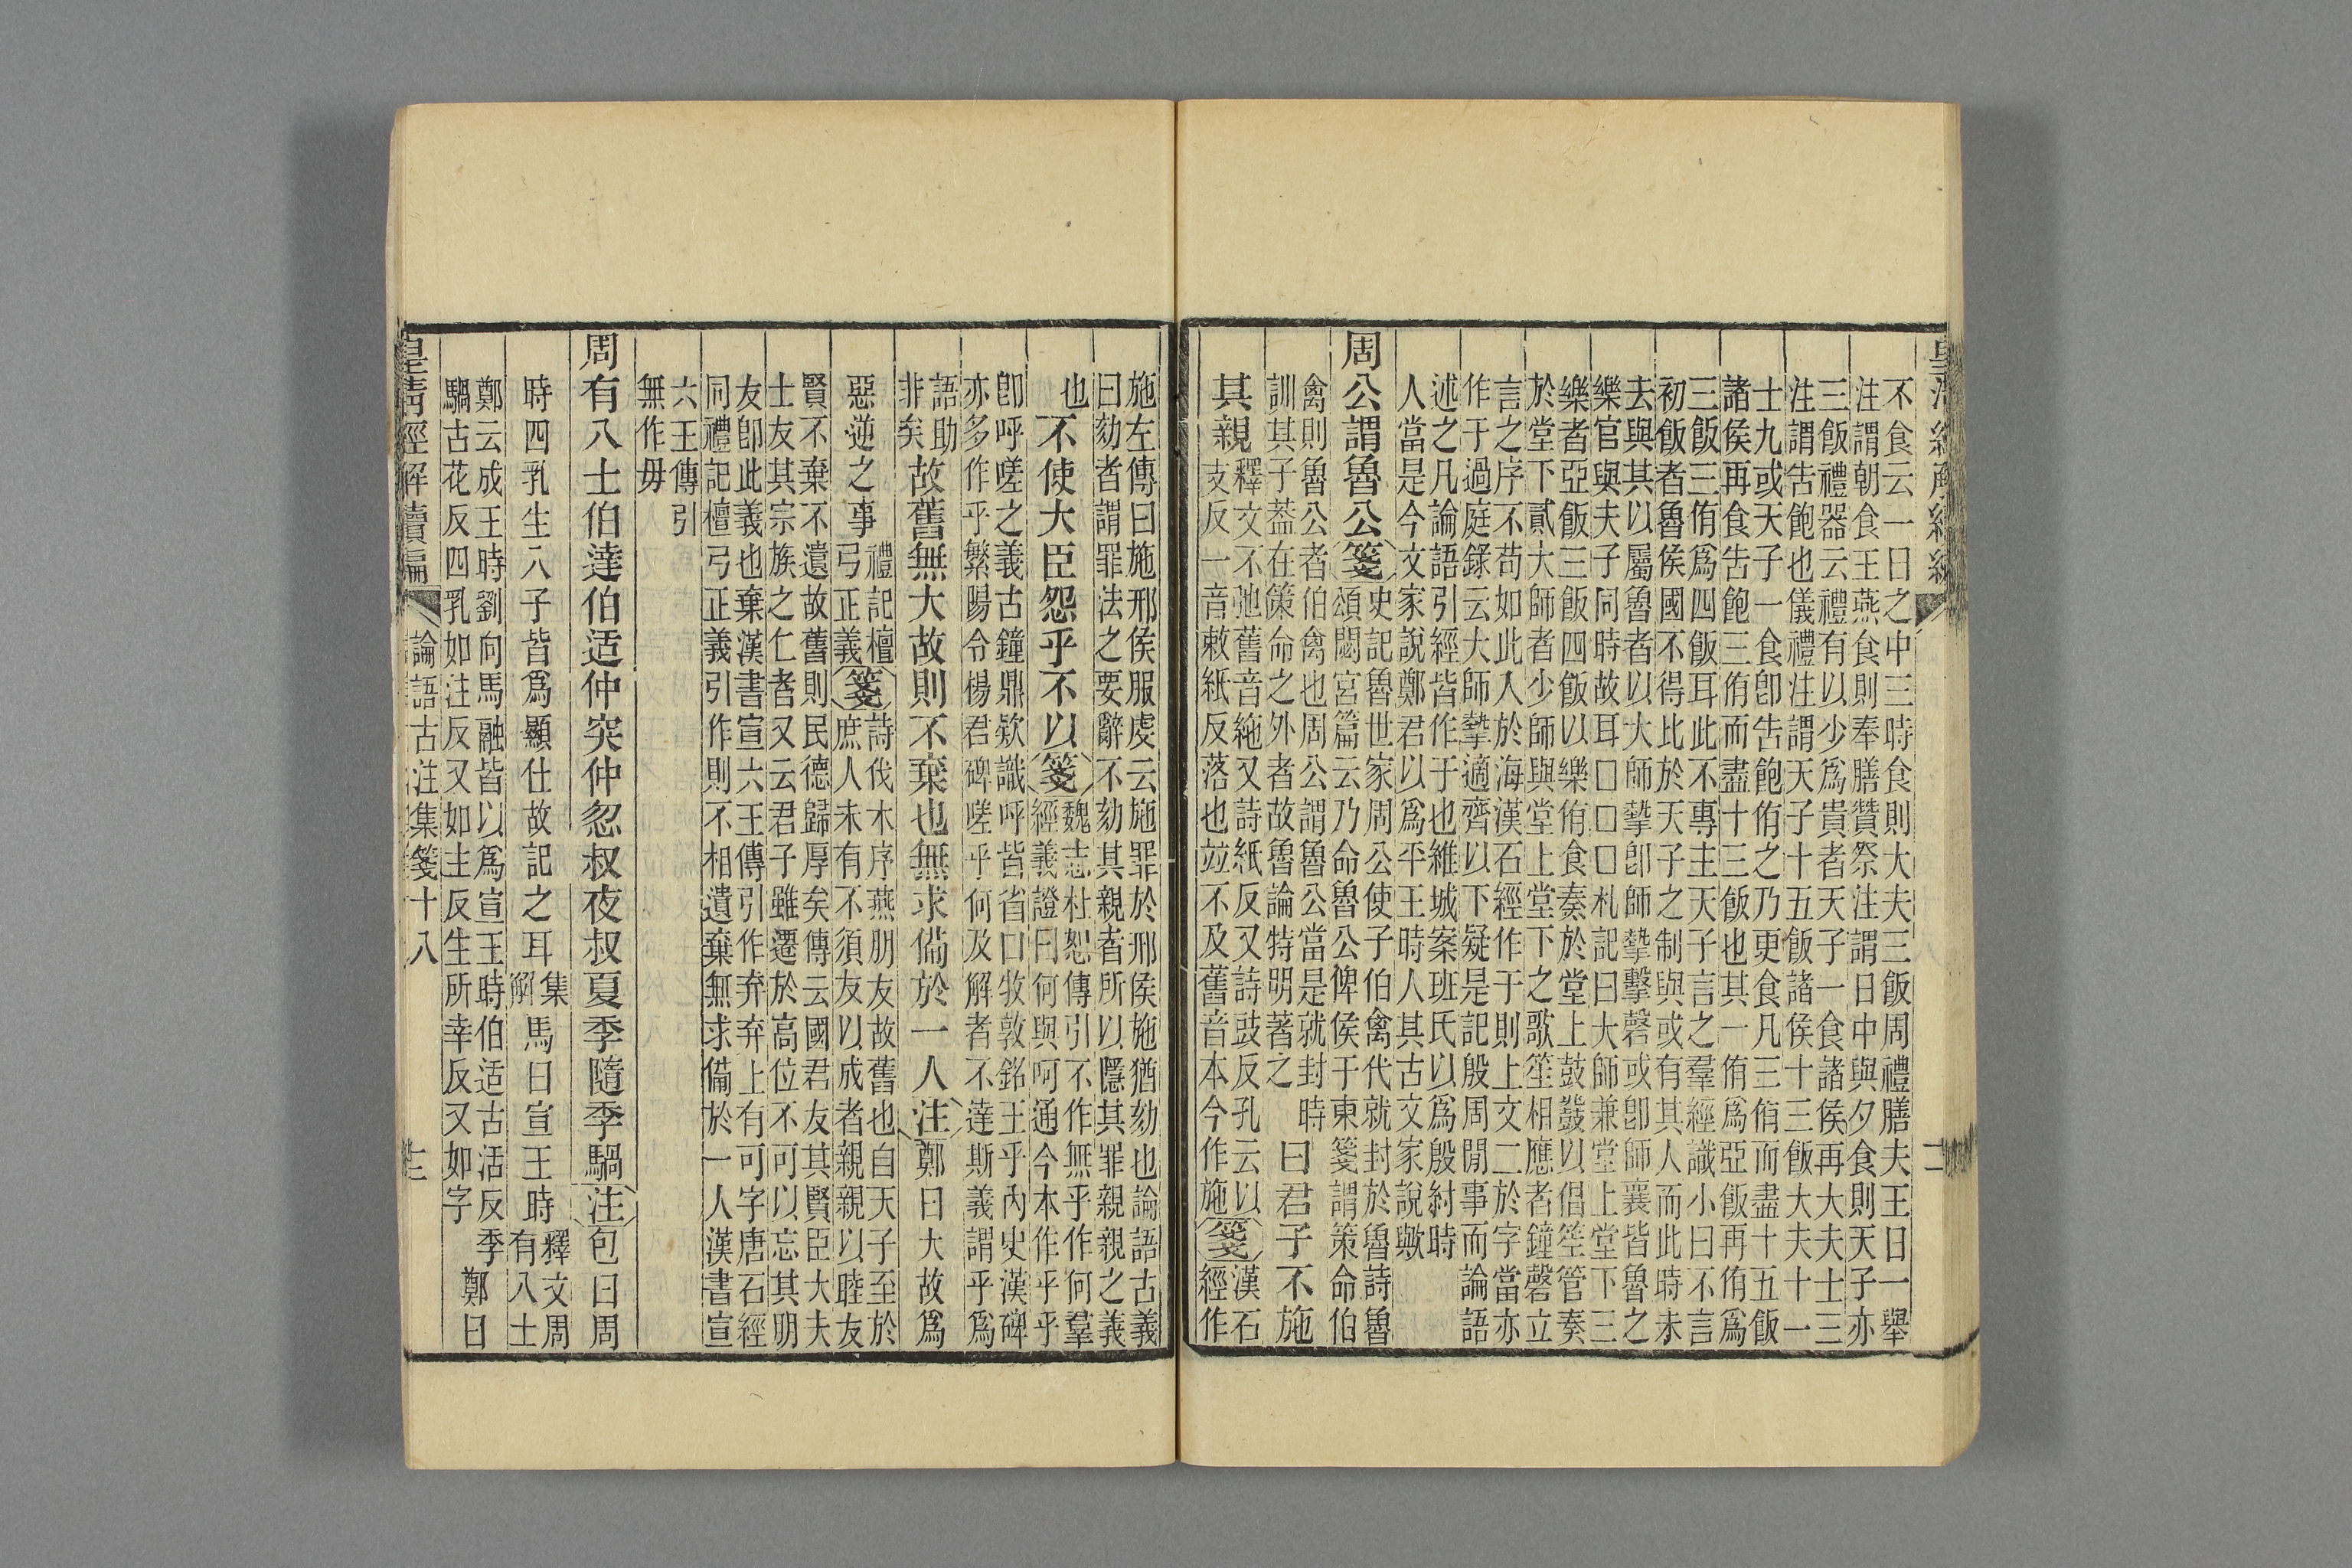 不食云一日之中三時食則大夫三飯周禮膳夫王日一舉
注謂朝食王燕食則奉膳贊祭注謂日中與夕食則天子亦
三飯禮器云禮有以少爲貴者天子一食諸侯再大夫士三
注謂告飽也儀禮注謂天子十五飯諸侯十三飯大夫十一
士九或天子一食卽告飽侑之乃更食凡三侑而盡十五飯
諸侯再食告飽三侑而盡十三飯也其一侑爲亞飯再侑爲
三飯三侑爲四飯耳此不專主天子言之羣經識小曰不言
初飯者魯侯國不得比於天子之制與或有其人而此時未
去與其以屬魯者以大師摯卽師摯擊磬或卽師襄皆魯之
樂官與夫子同時故耳□□□札記曰大師兼堂上堂下三
樂者亞飯三飯四飯以樂侑食奏於堂上鼓鼗以倡笙管奏
於堂下貳大師者少師與堂上堂下之歌笙相應者鐘磬立
言之序不苟如此入於海漢石經作于則上文二於字當亦
作于過庭錄云大師摯適齊以下疑是記殷周閒事而論語
述之凡論語引經皆作于也維城案班氏以爲殷紂時
人當是今文家說鄭君以爲平王時人其古文家說歟
周公謂魯公箋
史記魯世家周公使子伯禽代就封於魯詩魯
頌閟宮篇云乃命魯公俾侯于東箋謂策命伯
禽則魯公者伯禽也周公謂魯公當是就封時
訓其子葢在策命之外者故魯論特明著之
曰君子不施
其親
釋文不弛舊音絁又詩紙反又詩豉反孔云以
支反一音敕紙反落也竝不及舊音本今作施
箋
漢石
經作
施左傳曰施邢侯服虔云施罪於邢侯施猶劾也論語古義
曰劾者謂罪法之要辭不劾其親者所以隱其罪親親之義
也
不使大臣怨乎不以箋
魏志杜恕傳引不作無乎作何羣
經義證曰何與呵通今本作乎乎
卽呼嗟之義古鐘鼎欵識呼皆省口牧敦銘王乎內史漢碑
亦多作乎繁陽令楊君碑嗟乎何及解者不達斯義謂乎爲
語助
非矣
故舊無大故則不棄也無求備於一人注鄭曰大故爲
惡逆之事
禮記檀
弓正義
箋
詩伐木序燕朋友故舊也自天子至於
庶人未有不須友以成者親親以睦友
賢不棄不遺故舊則民德歸厚矣傳云國君友其賢臣大夫
士友其宗族之仁者又云君子雖遷於高位不可以忘其朋
友卽此義也棄漢書宣六王傳引作弃弃上有可字唐石經
同禮記檀弓正義引作則不相遺棄無求備於一人漢書宣
六王傳引
無作毋
周有八士伯達伯适仲突仲忽叔夜叔夏季隨季騧注包曰周
時四乳生八子皆爲顯仕故記之耳
集
解
馬曰宣王時
釋文周
有八士
鄭云成王時劉向馬融皆以爲宣王時伯适古活反季
騧古花反四乳如注反又如主反生所幸反又如字
鄭曰
皇清經解續編
論語古注集箋十八